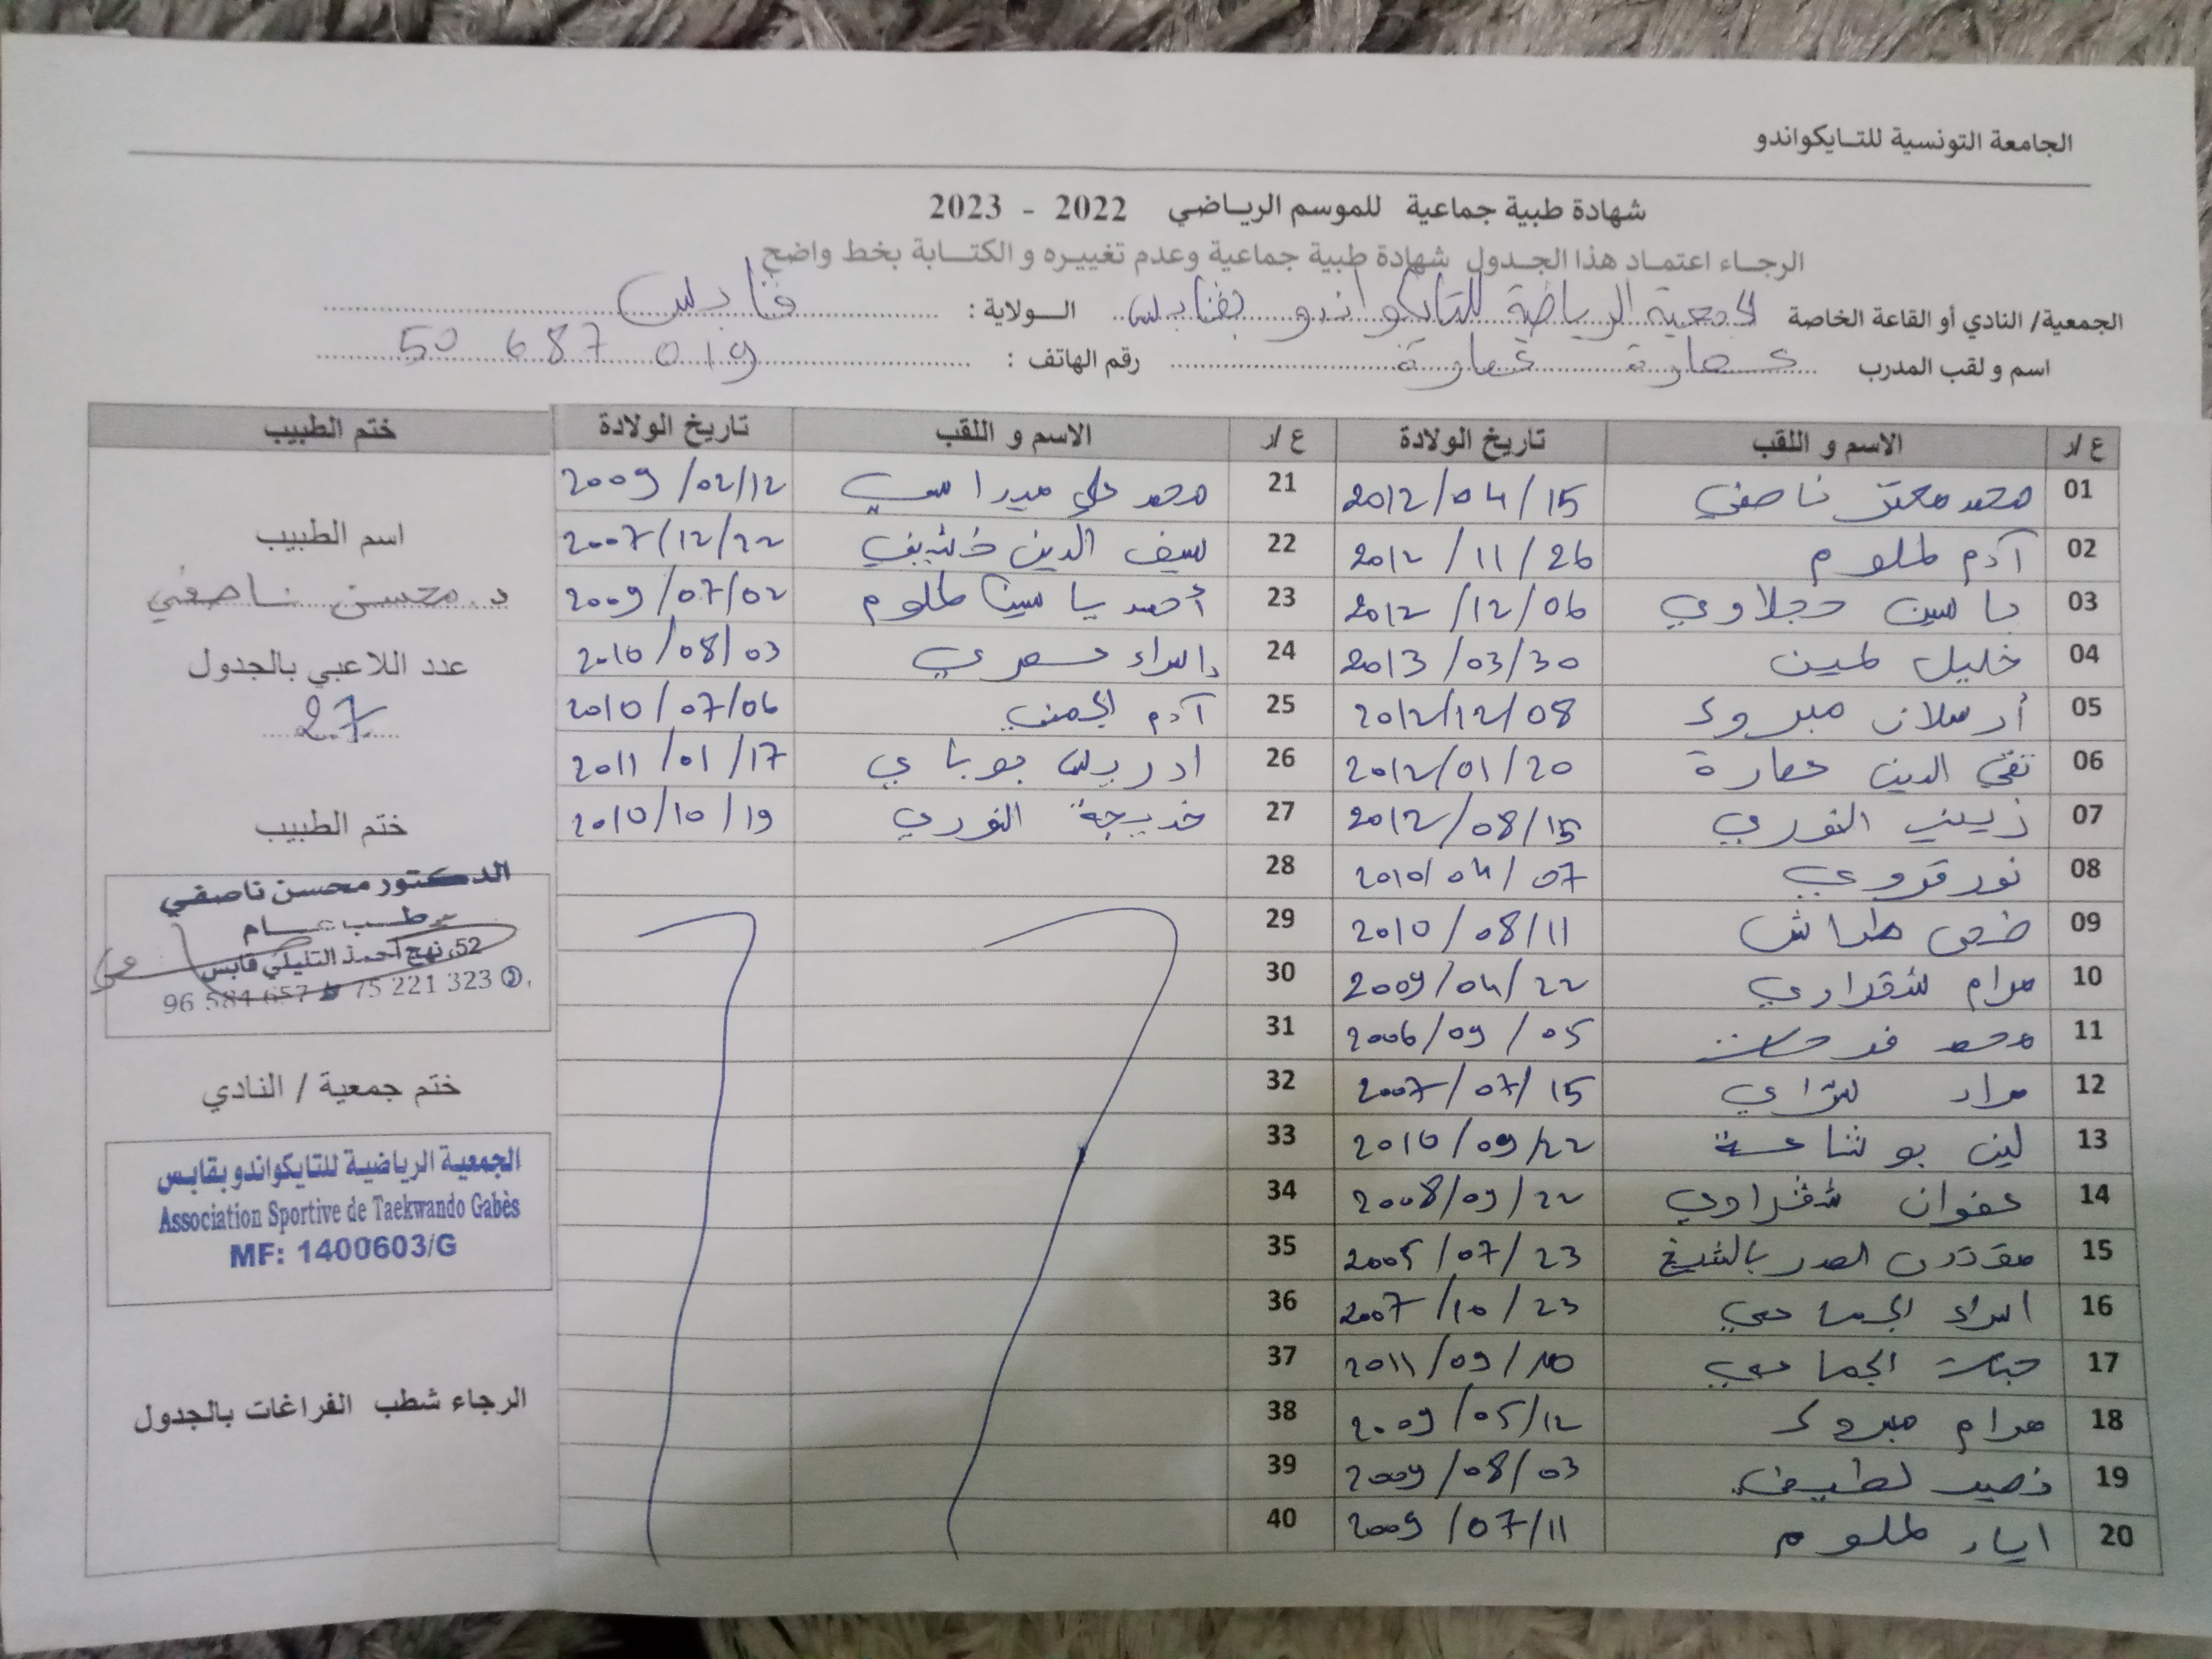 الجامعة التونسية للتـايكواندو
شهادة طبية جماعية للموسم الرياضي 2022 - 2023
الرجاء اعتماد هذا الجدول شهادة طبية جماعية وعدم تغييره و الكتابة بخط واضح
الجمعية/ النادي أو القاعة الخاصة الجمعية الرياضية للتايكواندو بقابس الـولاية : قابس
اسم و لقب المدرب عمارة عمارة رقم الهاتف : 50 687 019
ع/ر الاسم و اللقب تاريخ الولادة ع/ر الاسم و اللقب تاريخ الولادة ختم الطبيب
01 محمد معتز ناصفي 2012/04/15 21 محمد علي ميراسي 2009/02/12
02 آدم لملوم 2012/11/26 22 سيف الدين 2007/12/22
03 ياسين حجلاوي 2012/12/06 23 أحمد ياسين لملوم 2009/07/02
04 خليل لمين 2013/03/30 24 إسراء عمري 2010/08/03
05 أرسلان مبروك 2012/12/08 25 آدم الجمني 2010/07/06
06 تقي الدين عمارة 2012/01/20 26 ادريس جوباي 2011/01/17
07 زينب النوري 2012/08/15 27 خديجة النوري 2010/10/19
08 نور قروي 2010/04/07 28
09 ضحى طراش 2010/08/11 29
10 مرام شقراوي 2009/04/22 30
11 محمد فرحات 2006/09/05 31
12 مراد 2007/07/15 32
13 لين بوشاعة 2010/09/22 33
14 صفوان شقراوي 2008/09/22 34
15 الصدر بالشيخ 2005/07/23 35
16 اسراء الجماعي 2007/10/23 36
17 الجماعي 2011/09/10 37
18 مرام مبروك 2009/05/12 38
19 نصير لطيف 2009/08/03 39
20 اياد لملوم 2009/07/11 40
اسم الطبيب
د. محسن ناصفي
عدد اللاعبي بالجدول
27
ختم الطبيب
الدكتور محسن ناصفي
طب عام
52، نهج أحمد التليلي قابس
96 584 657 75 221 323
ختم جمعية / النادي
الجمعية الرياضية للتايكواندو بقابس
Association Sportive de Taekwando Gabès
MF: 1400603/G
الرجاء شطب الفراغات بالجدول